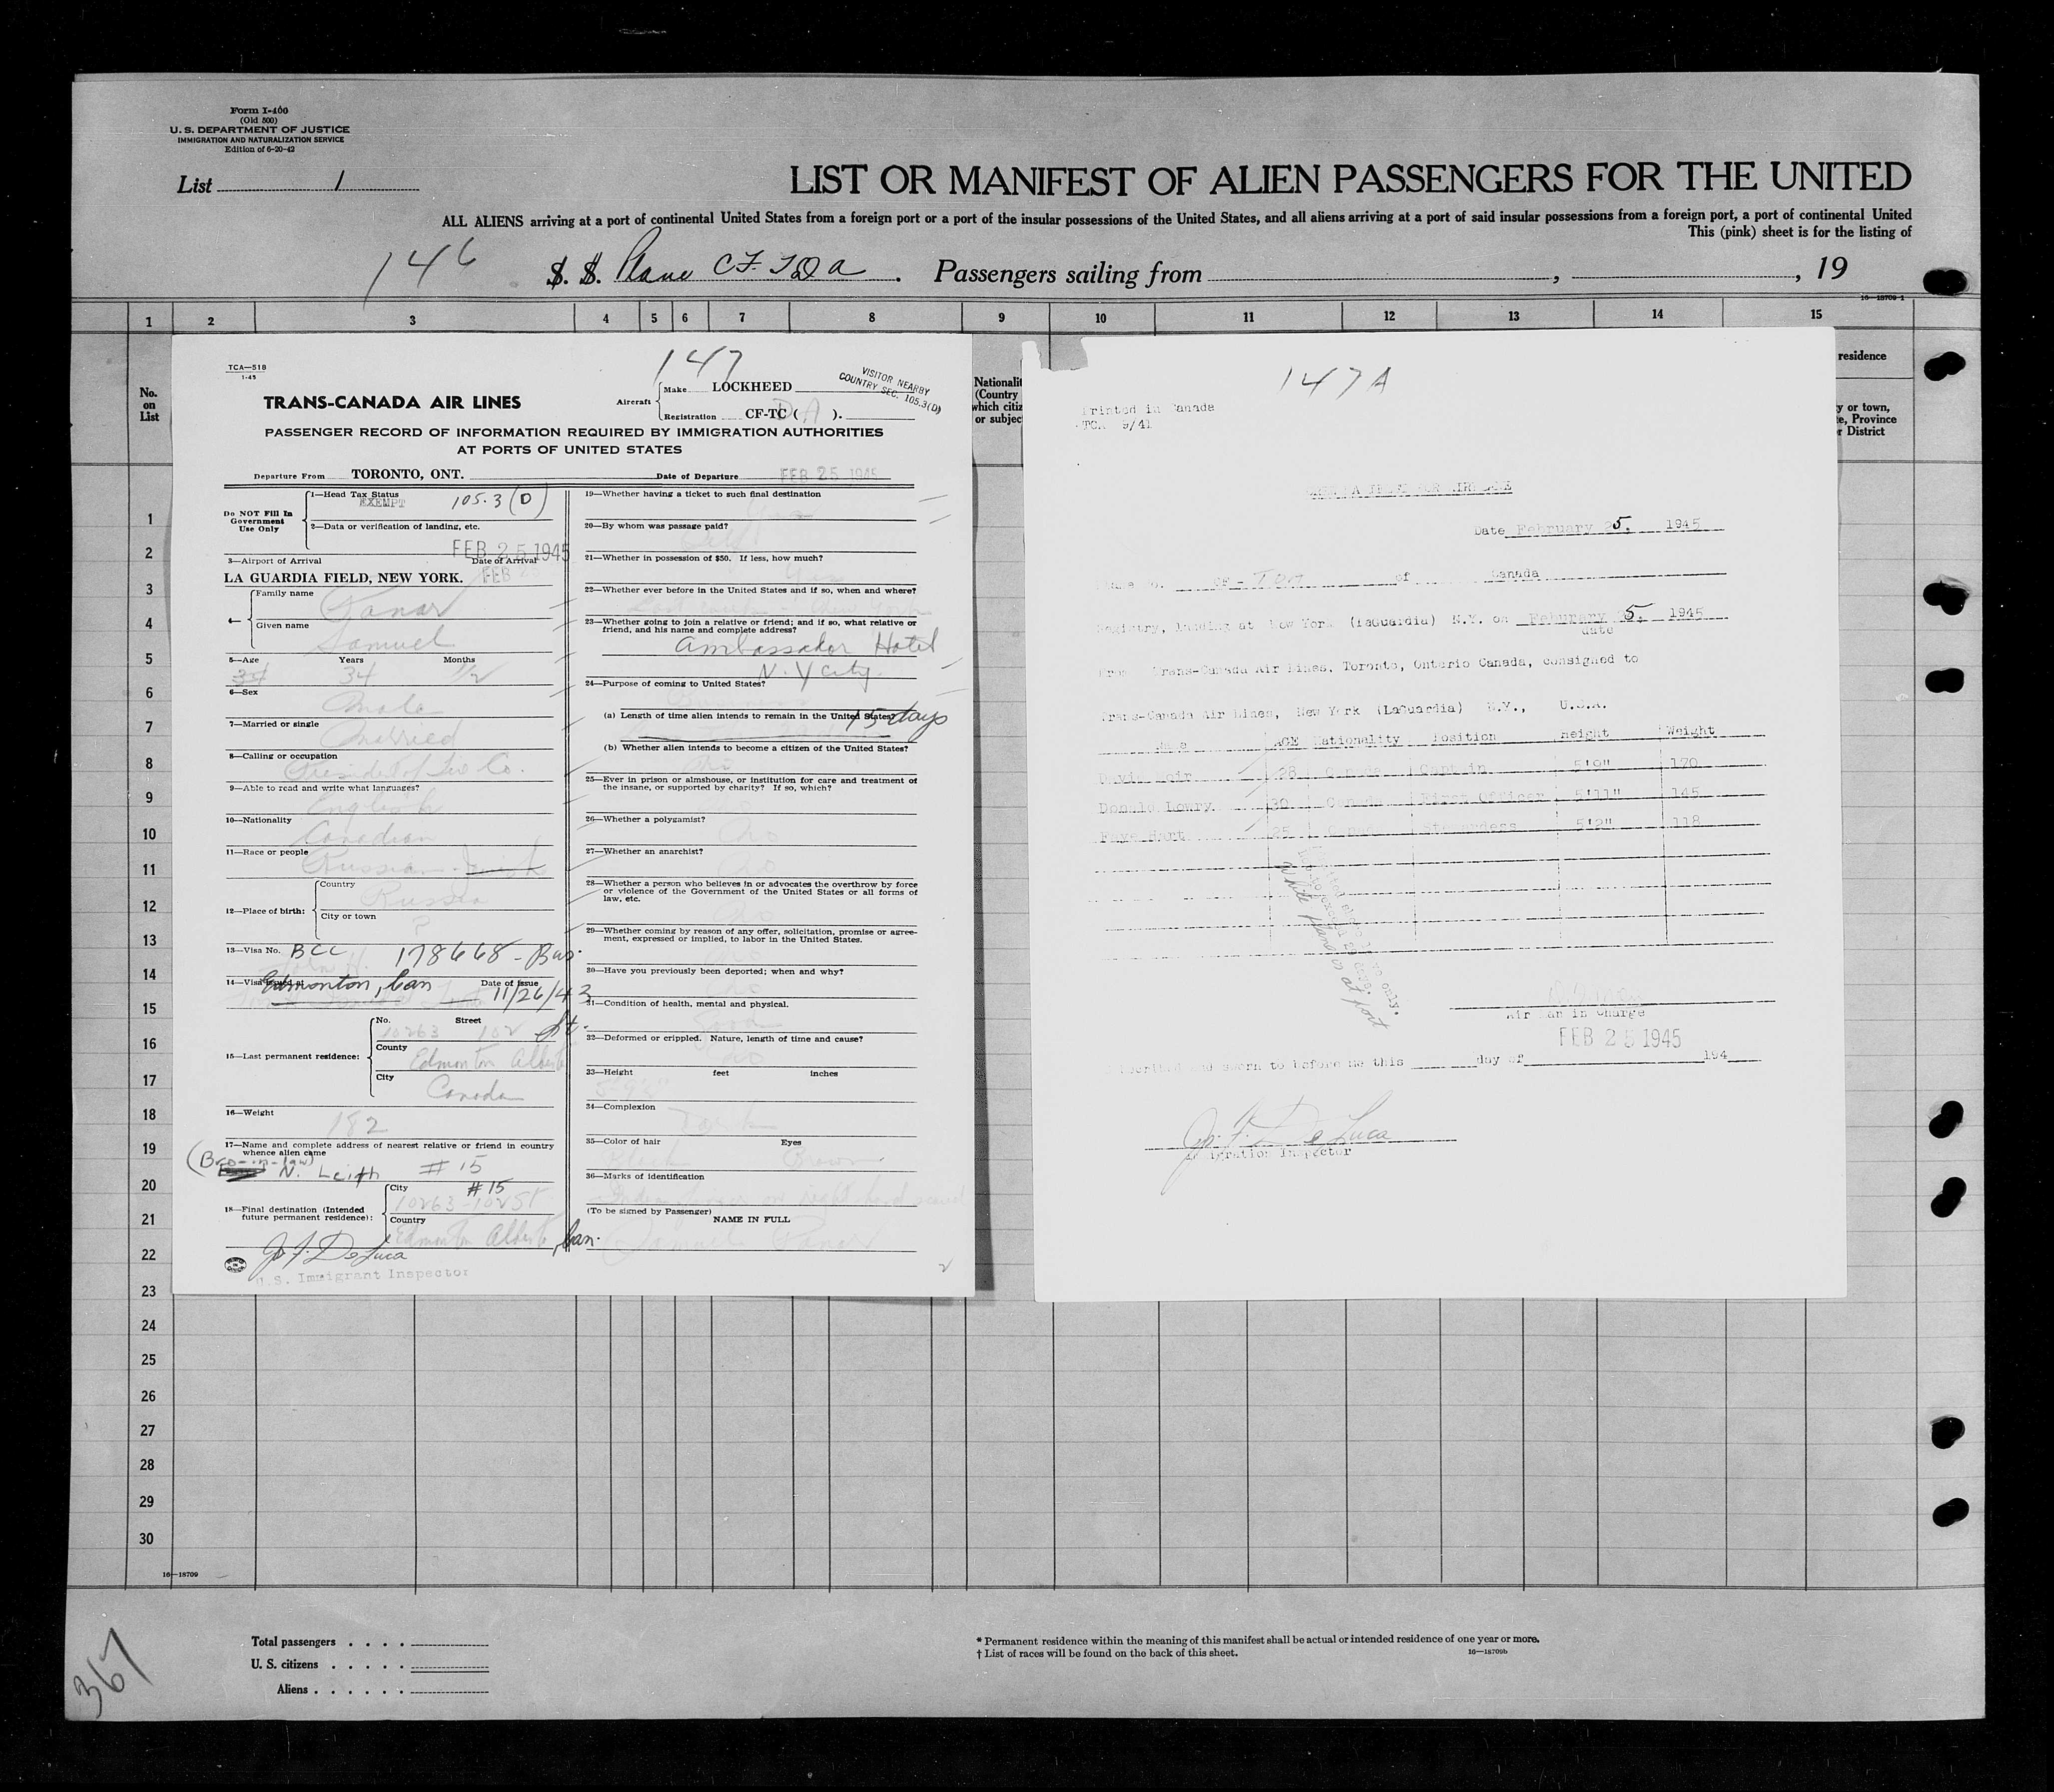 Form I-400
(Old 500)
U. S. DEPARTMENT OF JUSTICE
IMMIGRATION AND NATURALIZATION SERVICE
Edition of 6-20-42
List 1
LIST OR MANIFEST OF ALIEN PASSENGERS FOR THE UNITED
ALL ALIENS arriving at a port of continental United States from a foreign port or a port of the insular possessions of the United States, and all aliens arriving at a port of said insular possessions from a foreign port, a port of continental United
This (pink) sheet is for the listing of
146 S. S. Plane CF. TDA . Passengers sailing from , , 19
16—18709-1
1 2 3 4 5 6 7 8 9 10 11 12 13 14 15
No.
on
List
Nationalit
(Country
which citiz
or subjec
residence
y or town,
te, Province
r District
TCA—518
1-45
147
VISITOR NEARBY
COUNTRY SEC. 105.3(D)
TRANS-CANADA AIR LINES
Aircraft
Make LOCKHEED
Registration CF-TC ( DA ).
PASSENGER RECORD OF INFORMATION REQUIRED BY IMMIGRATION AUTHORITIES
AT PORTS OF UNITED STATES
Departure From TORONTO, ONT. Date of Departure FEB 25 1945
Do NOT Fill In
Government
Use Only
1—Head Tax Status
EXEMPT 105.3 (D)
2—Data or verification of landing, etc.
FEB 25 1945
3—Airport of Arrival Date of Arrival
LA GUARDIA FIELD, NEW YORK. FEB
4—
Family name
Panar
Given name
Samuel
5—Age Years Months
34 34 1/2
6—Sex
Male
7—Married or single
Married
8—Calling or occupation
President of Co.
9—Able to read and write what languages?
English
10—Nationality
Canadian
11—Race or people
Russian
12—Place of birth:
Country
Russia
City or town
?
13—Visa No. BCC 178668 - Bus.
14—Visa issued at Edmonton, Can Date of Issue 11/26/43
15—Last permanent residence:
No. Street
10263 102 St.
County
Edmonton Alberta
City
Canada
16—Weight
182
17—Name and complete address of nearest relative or friend in country
whence alien came
(Bro-in-law)
N. Leith # 15
18—Final destination (Intended
future permanent residence):
City # 15
10263-102 St
Country
Edmonton Alberta, Can.
Jos. F. DeLuca
U.S. Immigrant Inspector
19—Whether having a ticket to such final destination
Yes
20—By whom was passage paid?
Self
21—Whether in possession of $50. If less, how much?
Yes
22—Whether ever before in the United States and if so, when and where?
New York
23—Whether going to join a relative or friend; and if so, what relative or
friend, and his name and complete address?
Ambassador Hotel
N. Y City.
24—Purpose of coming to United States?
Business
(a) Length of time alien intends to remain in the United States?
15 days
(b) Whether alien intends to become a citizen of the United States?
No
25—Ever in prison or almshouse, or institution for care and treatment of
the insane, or supported by charity? If so, which?
No
26—Whether a polygamist?
No
27—Whether an anarchist?
No
28—Whether a person who believes in or advocates the overthrow by force
or violence of the Government of the United States or all forms of
law, etc.
No
29—Whether coming by reason of any offer, solicitation, promise or agree-
ment, expressed or implied, to labor in the United States.
No
30—Have you previously been deported; when and why?
No
31—Condition of health, mental and physical.
Good
32—Deformed or crippled. Nature, length of time and cause?
No
33—Height feet inches
34—Complexion
Dark
35—Color of hair Eyes
Black Brown
36—Marks of identification
Index finger on right hand scarred
(To be signed by Passenger)
NAME IN FULL
Samuel Panar
2
147 A
Printed in Canada
TCA 9/41
Date February 25, 1945
CF - TDA of Canada
Registry, landing at New York (LaGuardia) N.Y. on Feburary 25, 1945
date
From Trans-Canada Air Lines, Toronto, Ontario Canada, consigned to
Trans-Canada Air Lines, New York (LaGuardia) N.Y., U.S.A.
Name AGE Nationality Position Height Weight
28 Canada Captain 5'9" 170
Donald Lowry 30 Canada First Officer 5'11" 145
Faye Hart 25 Canada Stewardess 5'2" 118
While plane is at port
Air Man in Charge
FEB 25 1945
Subscribed and sworn to before me this day of 194
Jos. F. DeLuca
Immigration Inspector
1
2
3
4
5
6
7
8
9
10
11
12
13
14
15
16
17
18
19
20
21
22
23
24
25
26
27
28
29
30
16—18709
Total passengers . . . .
U. S. citizens . . . . .
Aliens . . . . . .
* Permanent residence within the meaning of this manifest shall be actual or intended residence of one year or more.
† List of races will be found on the back of this sheet. 16—18709b
367